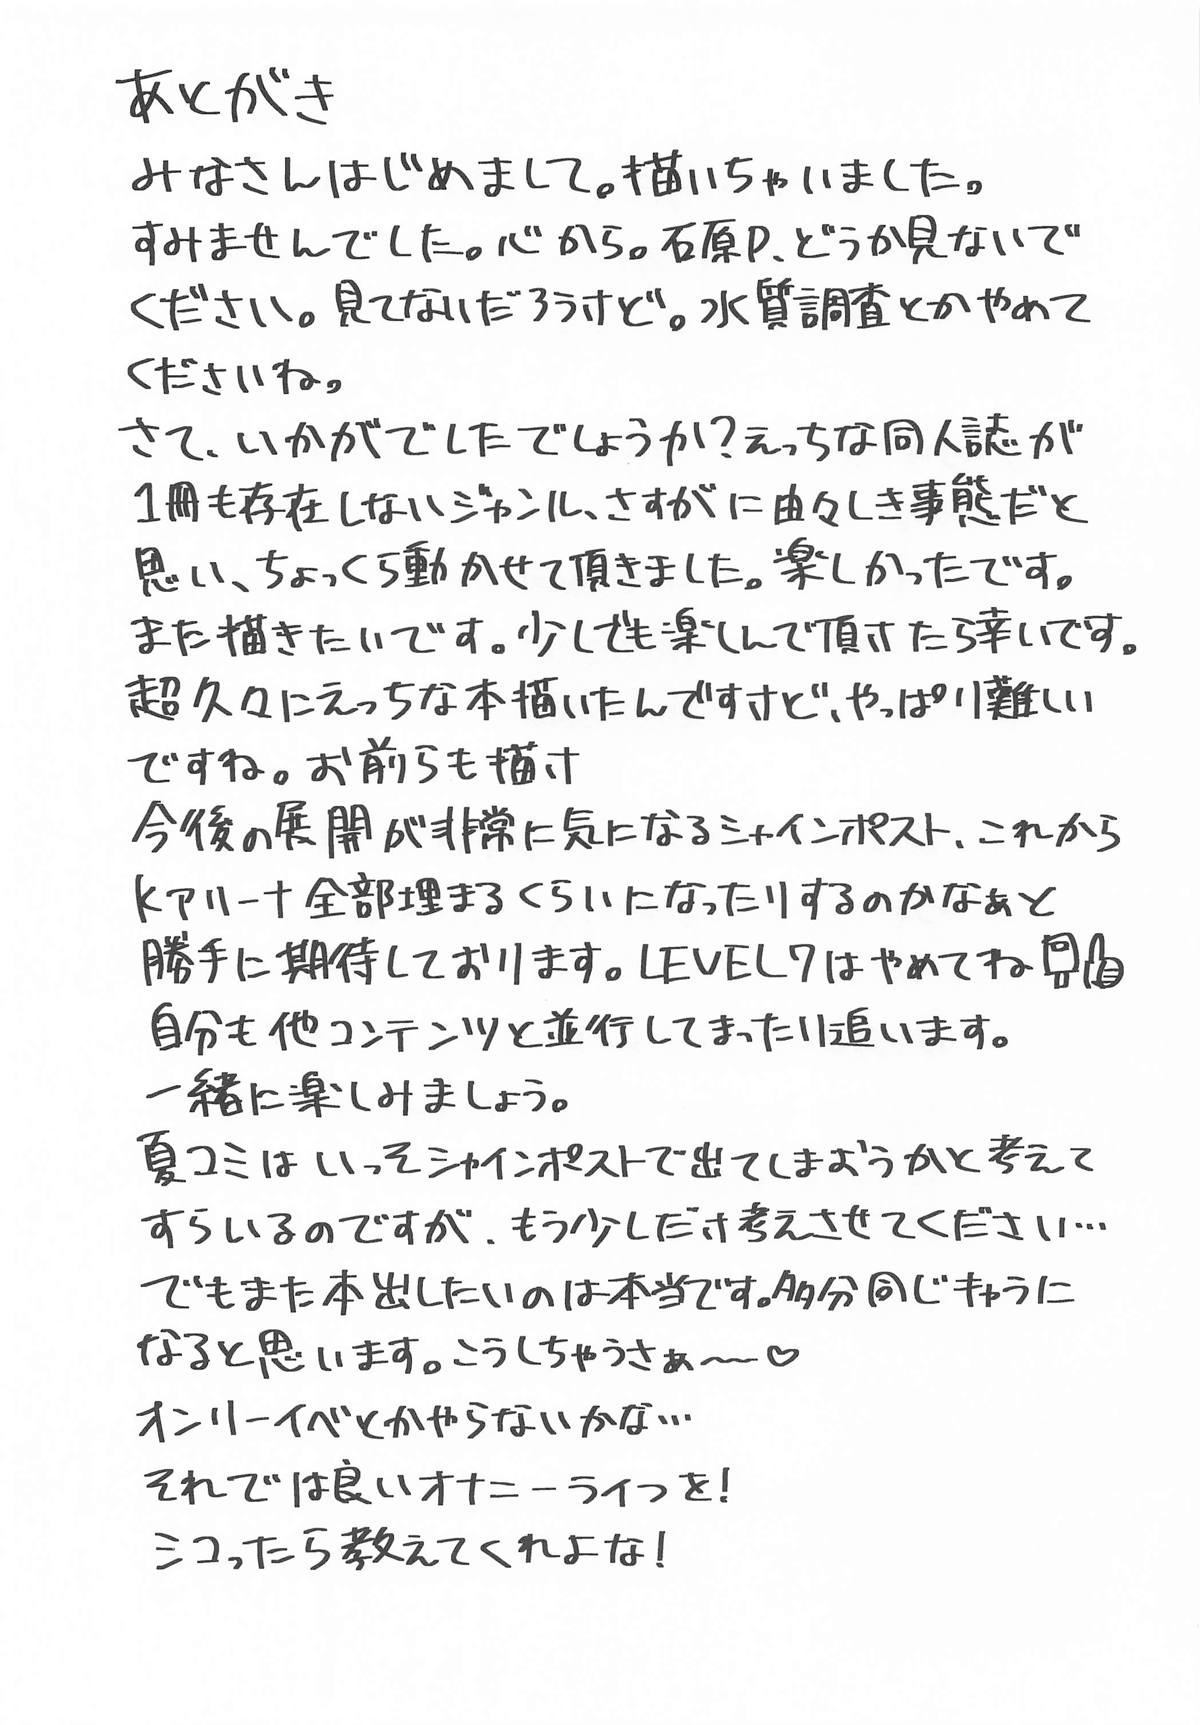 あとがき
みなさんはじめまして。描いちゃいました。
すみませんでした。心から。石原P、どうか見ないで
ください。見てないだろうけど。水質調査とかやめて
くださいね。
さて、いかがでしたでしょうか?えっちな同人誌が
1冊も存在しないジャンル、さすがに由々しき事態だと
思い、ちょっくら動かせて頂きました。楽しかったです。
また描きたいです。少しでも楽しんで頂けたら幸いです。
超久々にえっちな本描いたんですけど、やっぱり難しい
ですね。お前らも描け
今後の展開が非常に気になるシャインポスト、これから
Kアリーナ全部埋まるくらいになったりするのかなぁと
勝手に期待しております。LEVEL7はやめてね
自分も他コンテンツと並行してまったり追います。
一緒に楽しみましょう。
夏コミはいっそシャインポストで出てしまおうかと考えて
すらいるのですが、もう少しだけ考えさせてください…
でもまた本出したいのは本当です。多分同じキャラに
なると思います。こうしちゃうさぁ〜〜♡
オンリーイベとかやらないかな…
それでは良いオナニーライフを!
シコったら教えてくれよな!